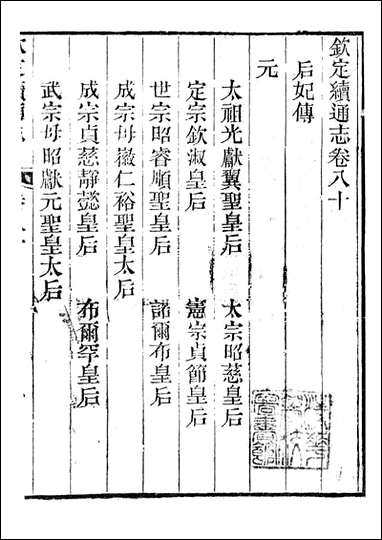 欽定續通志卷八十
后妃傳
元
太祖光獻翼聖皇后 太宗昭慈皇后
定宗欽淑皇后 憲宗貞節皇后
世宗昭睿順聖皇后 諾爾布皇后
成宗母徽仁裕聖皇太后
成宗貞慈靜懿皇后 布爾罕皇后
武宗母昭獻元聖皇太后